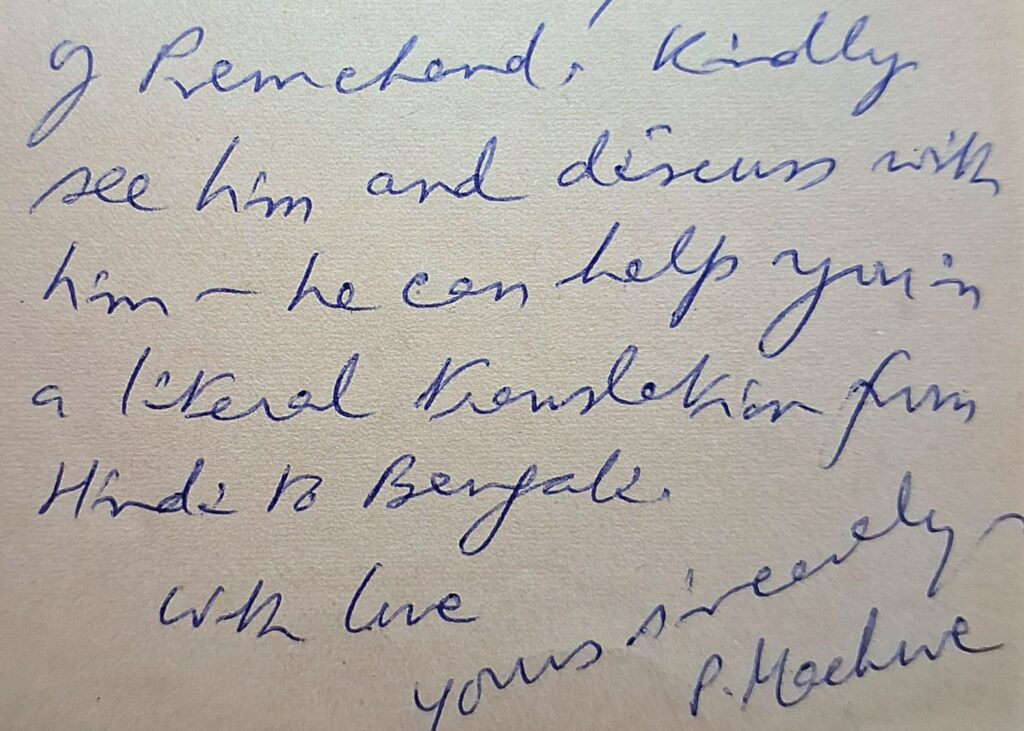 of Premchand. Kindly
see him and discuss with
him – he can help you in
a literal translation from
Hindi to Bengali.
With love
Yours sincerely
P. Machwe